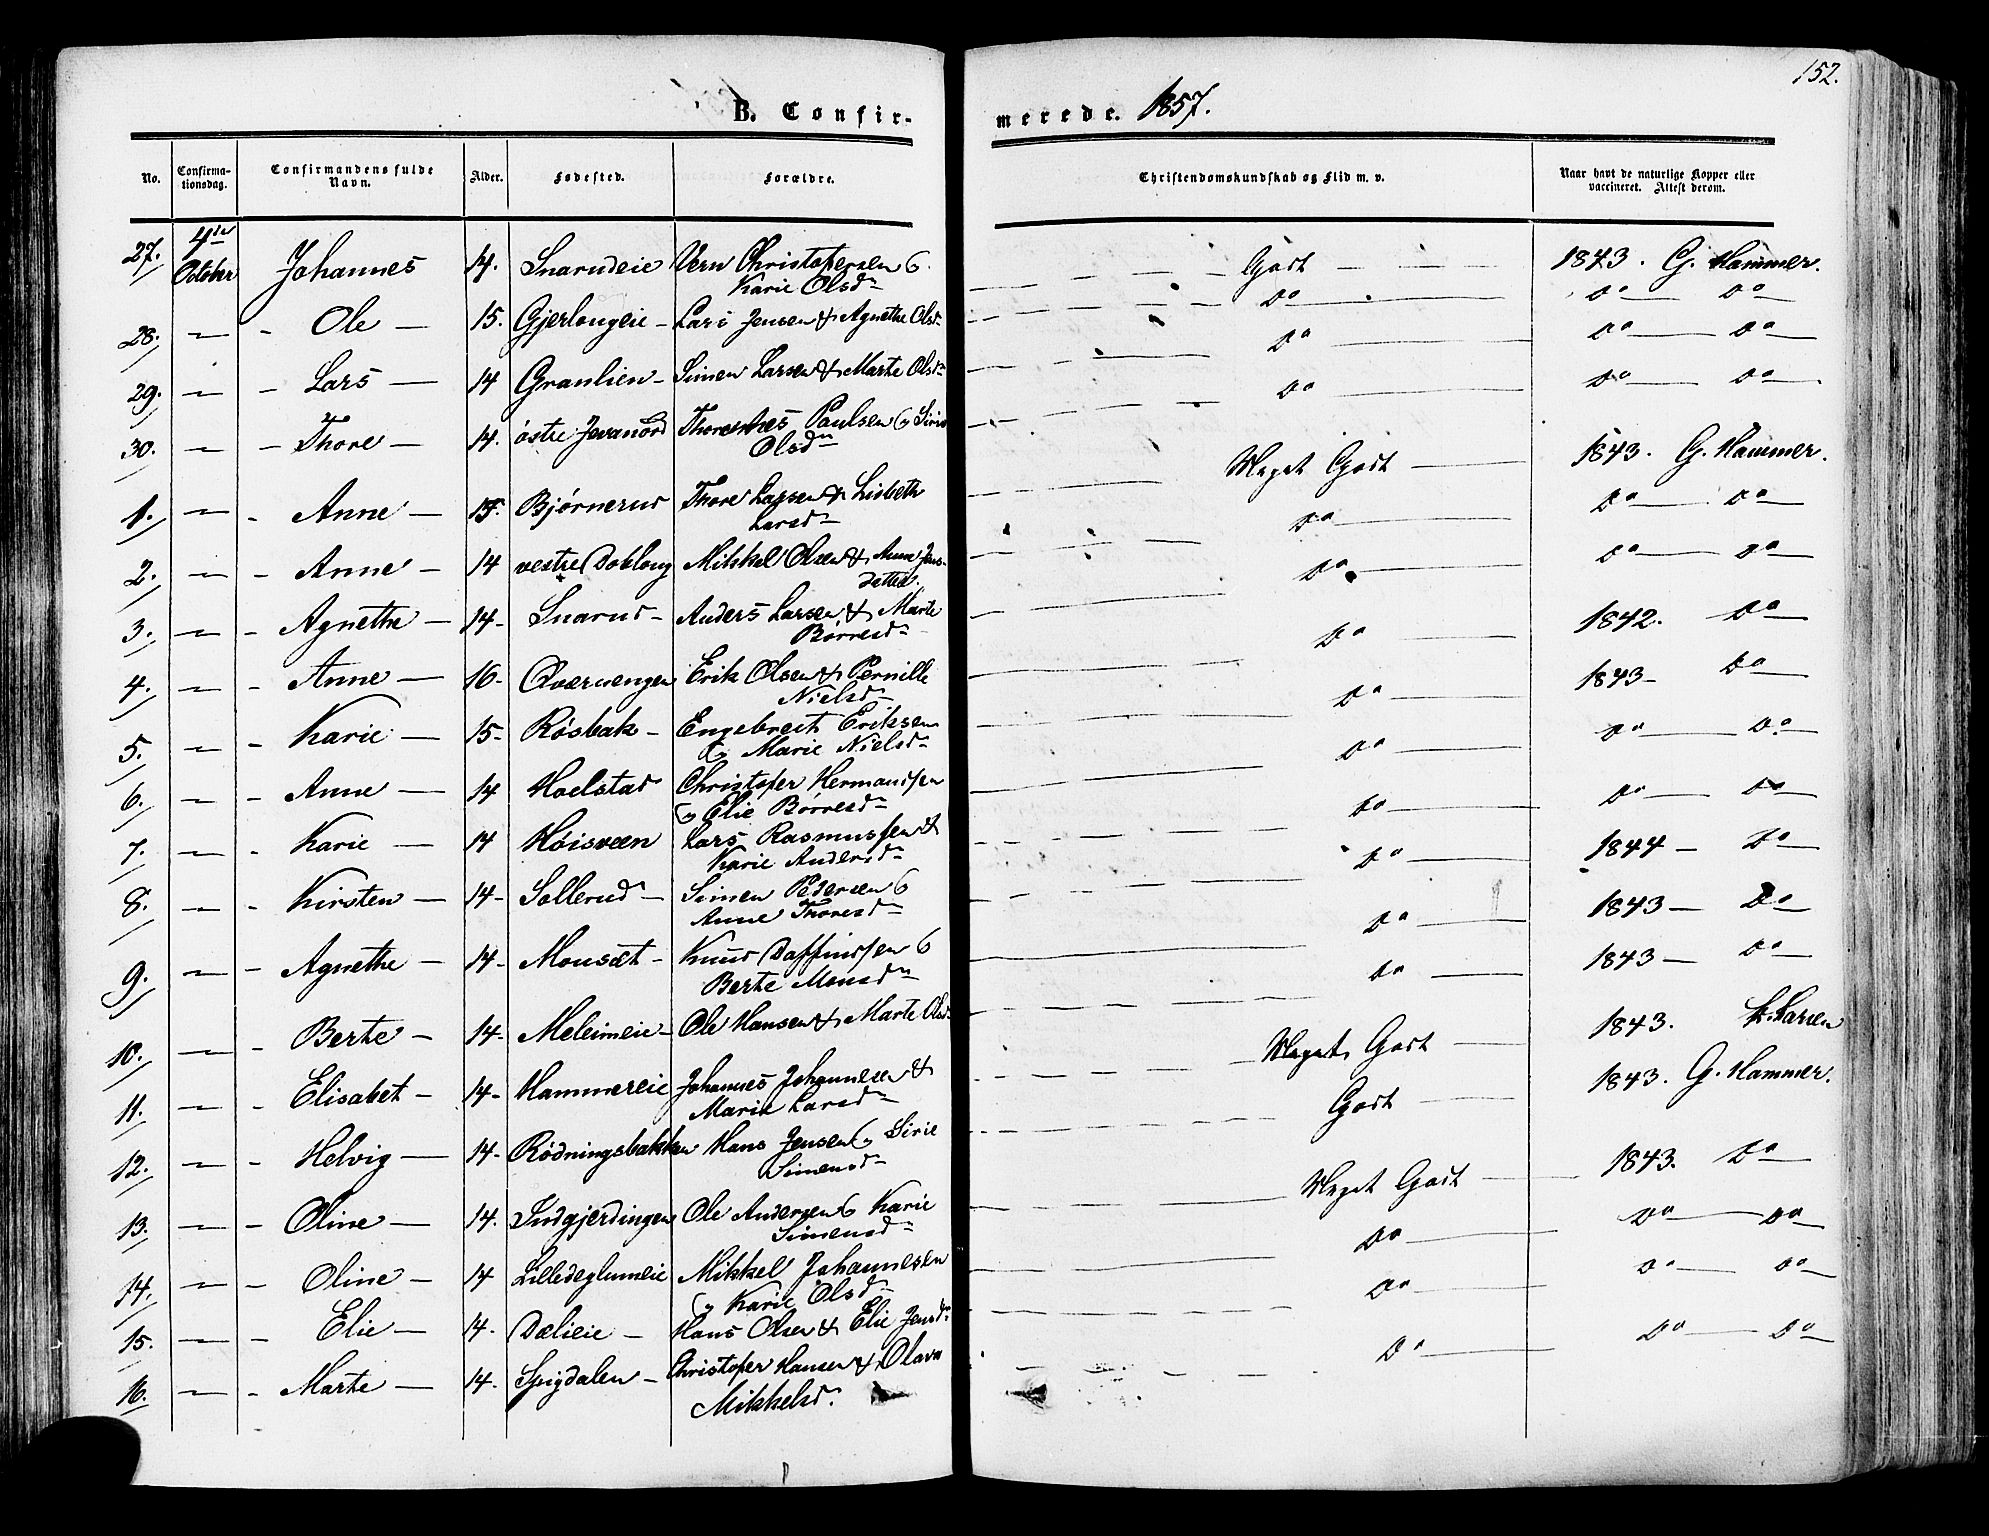 152.
B. Confirmerede. 1857.
No. Confirmationsdag. Confirmandens fulde Navn. Alder. Fødested. Forældre. Christendomskundskab og Flid m. v. Naar havt de naturlige Kopper eller vaccineret. Attest derom.
27. 4de October Johannes 14. Snarudeie Vern Christofersen & Karie Olsdr Godt 1843. G. Hammer.
28. — Ole — 15. Gjerlougeie Lars Jensen & Agnethe Olsdr Do Do Do
29. — Lars — 14 Granlien Simen Larsen & Marte Olsdr Do Do Do
30. — Thore — 14. østre Jevanord Paulsen & Siri Olsdn Do Do Do
1. — Anne — 15. Bjørnerud Thore Larsen & Lisbeth Larsdr Meget Godt 1843. G. Hammer.
2. — Anne — 14 vestre Dobloug Mikkel Olsen & Anne Jensdatter. Do Do Do
3. — Agnethe — 14 Snarud Anders Larsen & Marte Børresdr Do Do Do
4. — Anne — 16 Qværnengen Erik Olsen & Pernille Nielsdr Do 1842. Do
5. — Karie — 15 Røsbak Engebret Eriksen & Marie Nielsdr Do 1843 Do
6. — Anne — 14 Hoelstad Christofer Hermandsen & Elie Børresdr Do Do Do
7. — Karie — 14 Høisveen Lars Rasmussen & Karie Andersdr Do Do Do
8. — Kirsten — 14 Sollerud Simen Pedersen & Anne Thoresdr Do 1844 Do
9. — Agnethe — 14 Mousæt Knud Daffindsen & Berte Monsdn Do 1843 Do
10. — Berte — 14. Meleimeie Ole Hansen & Marte Olsd Do 1843 Do
11. — Elisabet — 14 Hammereie Johannes Johannesen & Marie Larsdr Meget Godt 1843. Larsen
12. — Helvig — 14 Rødningsbakken Hans Jensen & Sirie Simensdr Godt 1843. G. Hammer.
13. — Oline — 14. Indgjerdingen Ole Andersen & Karie Simensdr Meget Godt 1843. Do
14. — Oline — 14 Lilledeglumeie Mikkel Johannesen & Karie Olsdr Do Do Do
15. — Elie — 14. Dælieie Hans Olsen & Elie Jensdr Do Do Do
16. — Marte — 14. Spigdalen Christofer Hansen & Olava Mikkelsd. Do Do Do